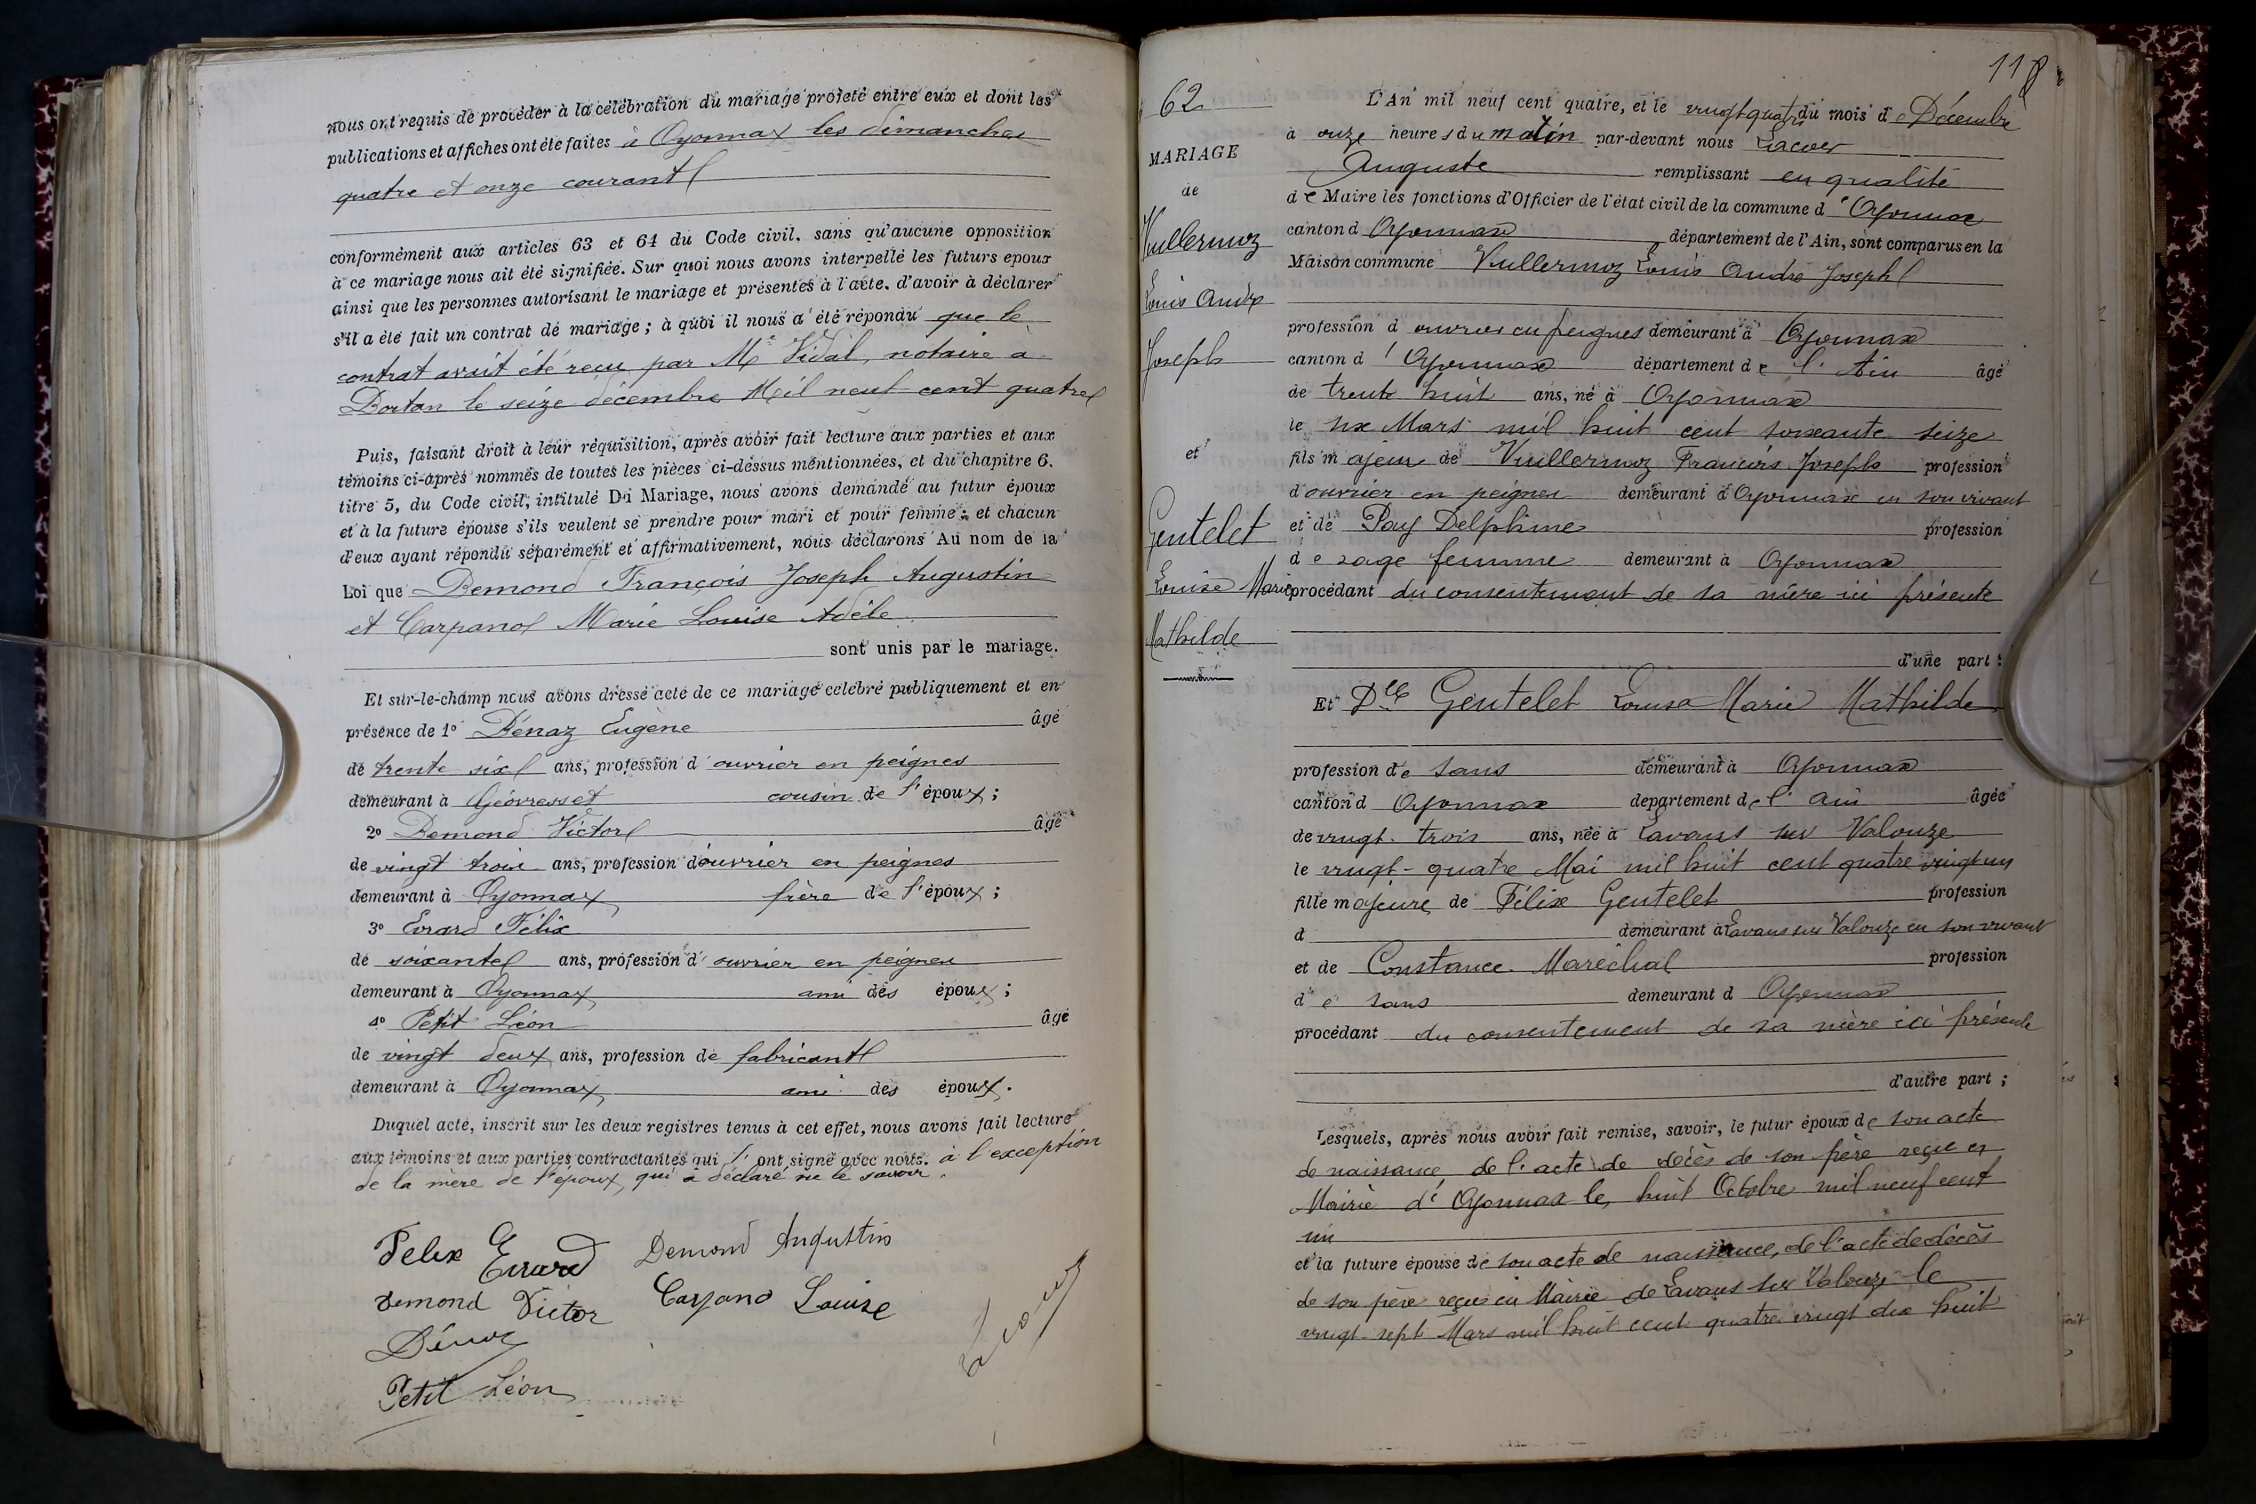 nous ont requis de procéder à la célébration du mariage projeté entre eux et dont les
publications et affiches ont été faites à Oyonnax les dimanches
quatre et onze courant
conformément aux articles 63 et 64 du Code civil, sans qu'aucune opposition
à ce mariage nous ait été signifiée. Sur quoi nous avons interpellé les futurs époux
ainsi que les personnes autorisant le mariage et présentes à l'acte, d'avoir à déclarer
s'il a été fait un contrat de mariage ; à quoi il nous a été répondu que le
contrat avait été reçu par Me Vidal, notaire à
Dortan le seize décembre Mil neuf cent quatre
Puis, faisant droit à leur réquisition, après avoir fait lecture aux parties et aux
témoins ci-après nommés de toutes les pièces ci-dessus mentionnées, et du chapitre 6,
titre 5, du Code civil, intitulé Du Mariage, nous avons demandé au futur époux
et à la future épouse s'ils veulent se prendre pour mari et pour femme ; et chacun
d'eux ayant répondu séparément et affirmativement, nous déclarons Au nom de la
Loi que Demond François Joseph Augustin
et Carpano Marie Louise Adèle
sont unis par le mariage.
Et sur-le-champ nous avons dressé acte de ce mariage célébré publiquement et en
présence de 1° Dénaz Eugène âgé
de trente six ans, profession d'ouvrier en peignes
demeurant à Géovresset cousin de l'époux ;
2° Demond Victor âgé
de vingt trois ans, profession d'ouvrier en peignes
demeurant à Oyonnax frère de l'époux ;
3° Evrard Félix
de soixante ans, profession d'ouvrier en peignes
demeurant à Oyonnax ami des époux ;
4° Petit Léon âgé
de vingt deux ans, profession de fabricant
demeurant à Oyonnax ami des époux.
Duquel acte, inscrit sur les deux registres tenus à cet effet, nous avons fait lecture
aux témoins et aux parties contractantes qui l'ont signé avec nous. à l'exception
de la mère de l'époux, qui a déclaré ne le savoir.
Felix Evrard Demond Augustin
Demond Victor Carpano Louise
Dénaz
Petit Léon
Lacour
118
62
MARIAGE
de
Vuillermoz
Louis André
Joseph
et
Gentelet
Louise Marie
Mathilde
L'An mil neuf cent quatre, et le vingt quatre du mois de Décembre
à onze heures du matin par-devant nous Lacour
Auguste remplissant en qualité
de Maire les fonctions d'Officier de l'état civil de la commune d'Oyonnax
canton d Oyonnax département de l'Ain, sont comparus en la
Maison commune Vuillermoz Louis André Joseph
profession d ouvrier en peignes demeurant à Oyonnax
canton d'Oyonnax département de l'Ain âgé
de trente huit ans, né à Oyonnax
le six Mars mil huit cent soixante seize
fils majeur de Vuillermoz Francois Joseph profession
d'ouvrier en peignes demeurant à Oyonnax en son vivant
et de Pay Delphine profession
de sage femme demeurant à Oyonnax
procédant du consentement de sa mère ici présente
d'une part :
Et Dlle Gentelet Louise Marie Mathilde
profession de sans demeurant à Oyonnax
canton d Oyonnax département de l'ain âgée
de vingt-trois ans, née à Lavans sur Valouze
le vingt-quatre Mai mil huit cent quatre vingt un
fille majeure de Félix Gentelet profession
d demeurant à Lavans sur Valouze en son vivant
et de Constance Maréchal profession
de sans demeurant d Oyonnax
procédant du consentement de sa mère ici présente
d'autre part ;
Lesquels, après nous avoir fait remise, savoir, le futur époux de son acte
de naissance, de l'acte de décès de son père reçu en
Mairie d'Oyonnax le huit Octobre mil neuf cent
un
et la future épouse de son acte de naissance, de l'acte de décès
de son père reçu en Mairie de Lavans sur Valouze le
vingt-sept Mars mil huit cent quatre vingt dix huit